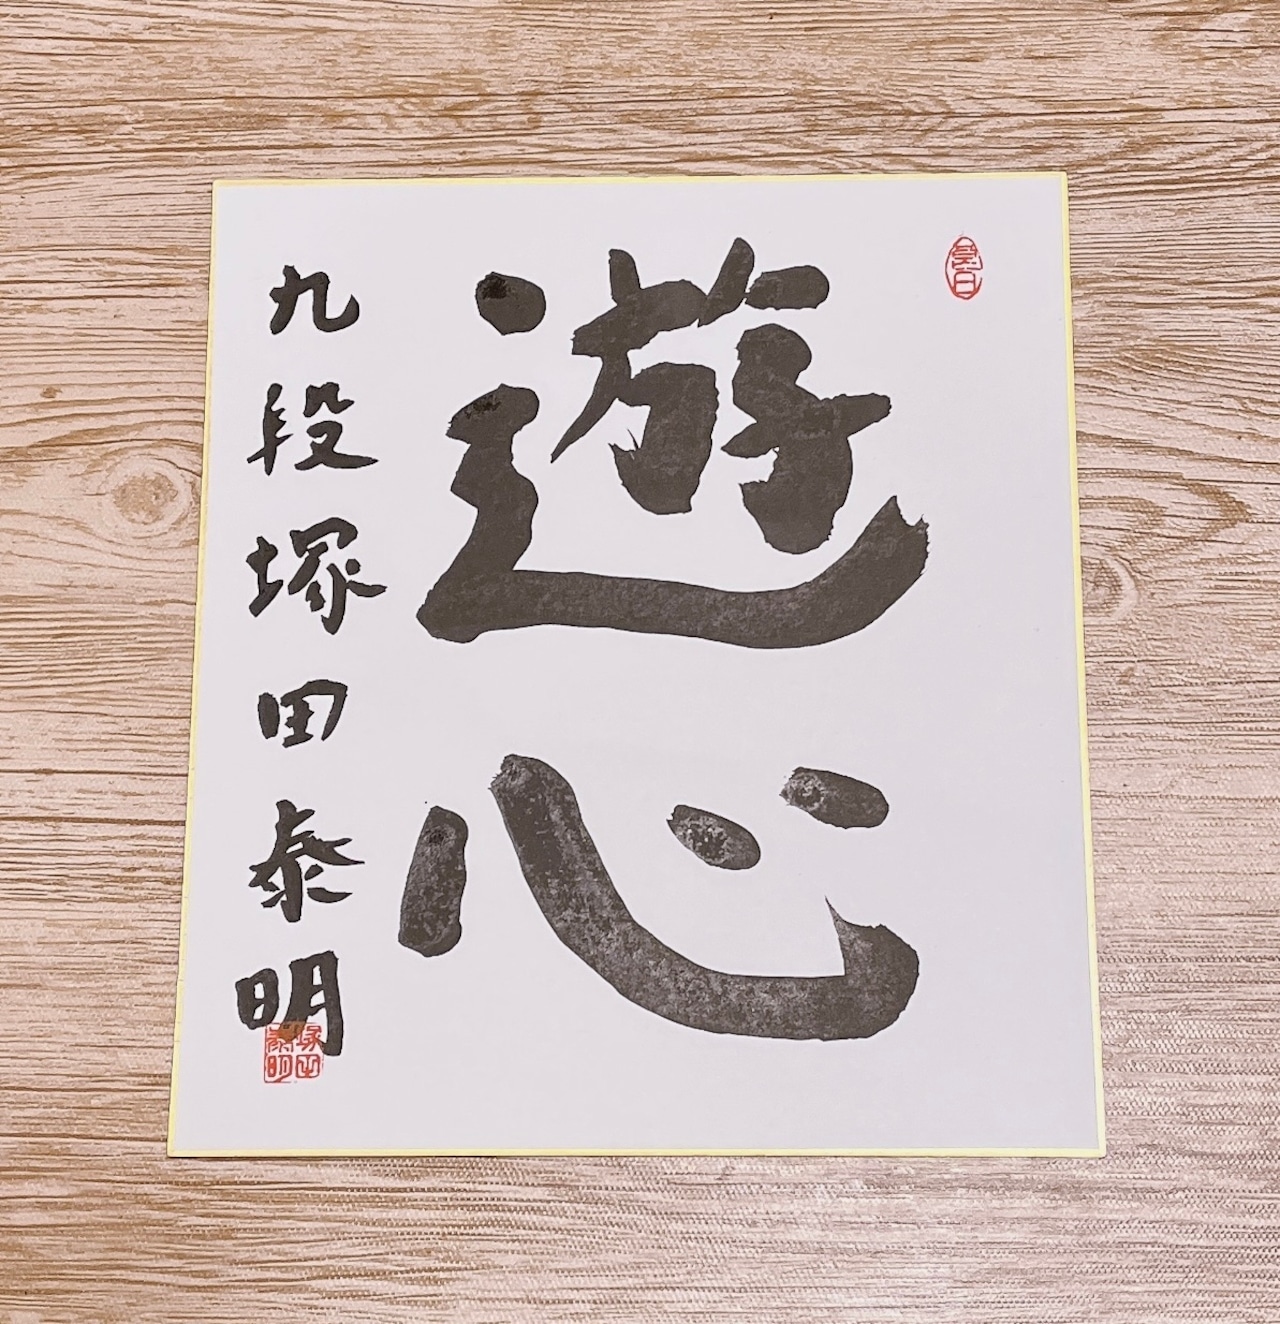 遊心
九段塚田泰明
塚田泰明